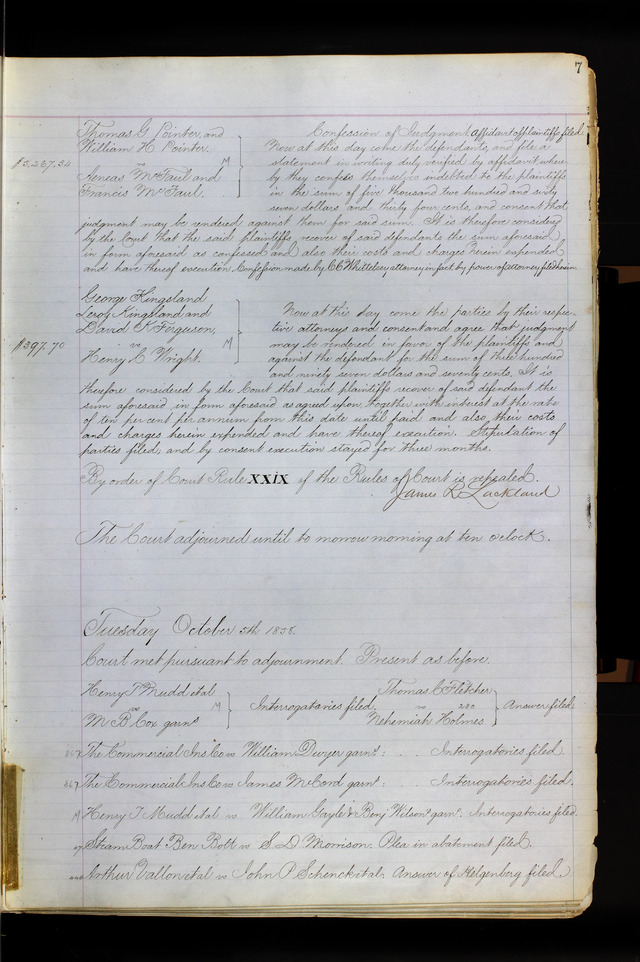 7
Thomas G. Pointer, and
William H. Pointer.
vs M
$5,267.34
Aeneas McFaul and
Francis McFaul.
Confession of Judgment, affidavit of plaintiffs filed.
Now at this day come the defendants, and file a
statement in writing duly verified by affidavit where
by they confess themselves indebted to the plaintiffs
in the sum of five thousand two hundred and sixty
seven dollars and thirty four cents, and consent that
judgment may be rendered against them for said sum. It is therefore considered
by the Court that the said plaintiffs recover of said defendants the sum aforesaid,
in form aforesaid as confessed and also their costs and charges herein expended,
and have thereof execution. Confession made by C C Whittelsey attorney in fact by power of attorney filed herein.
George Kingsland
Leroy Kingsland and
David K Ferguson,
vs M
$397.70
Henry C Wright.
Now at this day come the parties by their respec-
tive attorneys and consent and agree that judgment
may be rendered in favor of the plaintiffs and
against the defendant for the sum of three hundred
and ninety seven dollars and seventy cents. It is
therefore considered by the Court that said plaintiffs recover of said defendant the
sum aforesaid in form aforesaid as agreed upon, together with interest at the rate
of ten per cent per annum from this date until paid and also their costs
and charges herein expended and have thereof execution. Stipulation of
parties filed, and by consent execution stayed for three months.
By order of Court Rule XXIX of the Rules of Court is repealed.
James R. Lackland
The Court adjourned until to morrow morning at ten o'clock.
Tuesday October 5th 1858.
Court met pursuant to adjournment. Present as before.
Henry T Mudd et al
vs M
M B Cox garnt
Interrogatories filed.
Thomas C Fletcher
vs 280
Nehemiah Holmes
Answer filed.
The Commercial Ins Co vs William Dwyer garnt: . . Interrogatories filed.
The Commercial Ins Co vs James McCord garnt: . . Interrogatories filed.
M Henry T. Mudd et al vs William Gayle & Benj Wilson garnt. Interrogatories filed.
Steam Boat Ben Bolt vs S. D Morrison. Plea in abatement filed.
Arthur Vallon et al vs John P Schenck et al. Answer of Helgenberg filed.